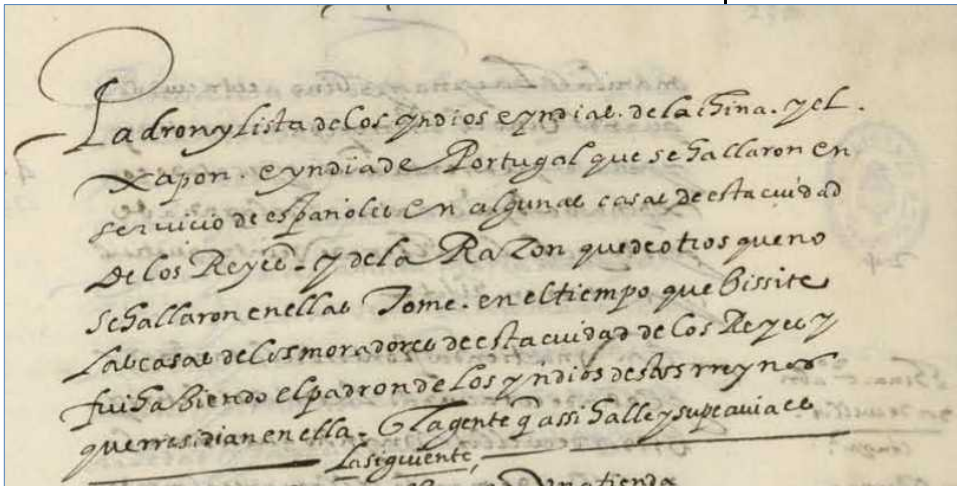 Padron y lista de los yndios e yndias. de la china. y el.
Xapon. e yndia de Portugal que se hallaron en
seruicio de españoles en algunas casas de esta ciudad
de los Reyes - y de la Razon que de otros que no
se hallaron en ellas Tome. en el tiempo que bissite
las casas de los moradores de esta ciudad de los Reyes y
fui habiendo el padron de los yndios destos rreynos
que rresidian en ella - La gente q̃ assi halle y supe auia es
la siguiente,